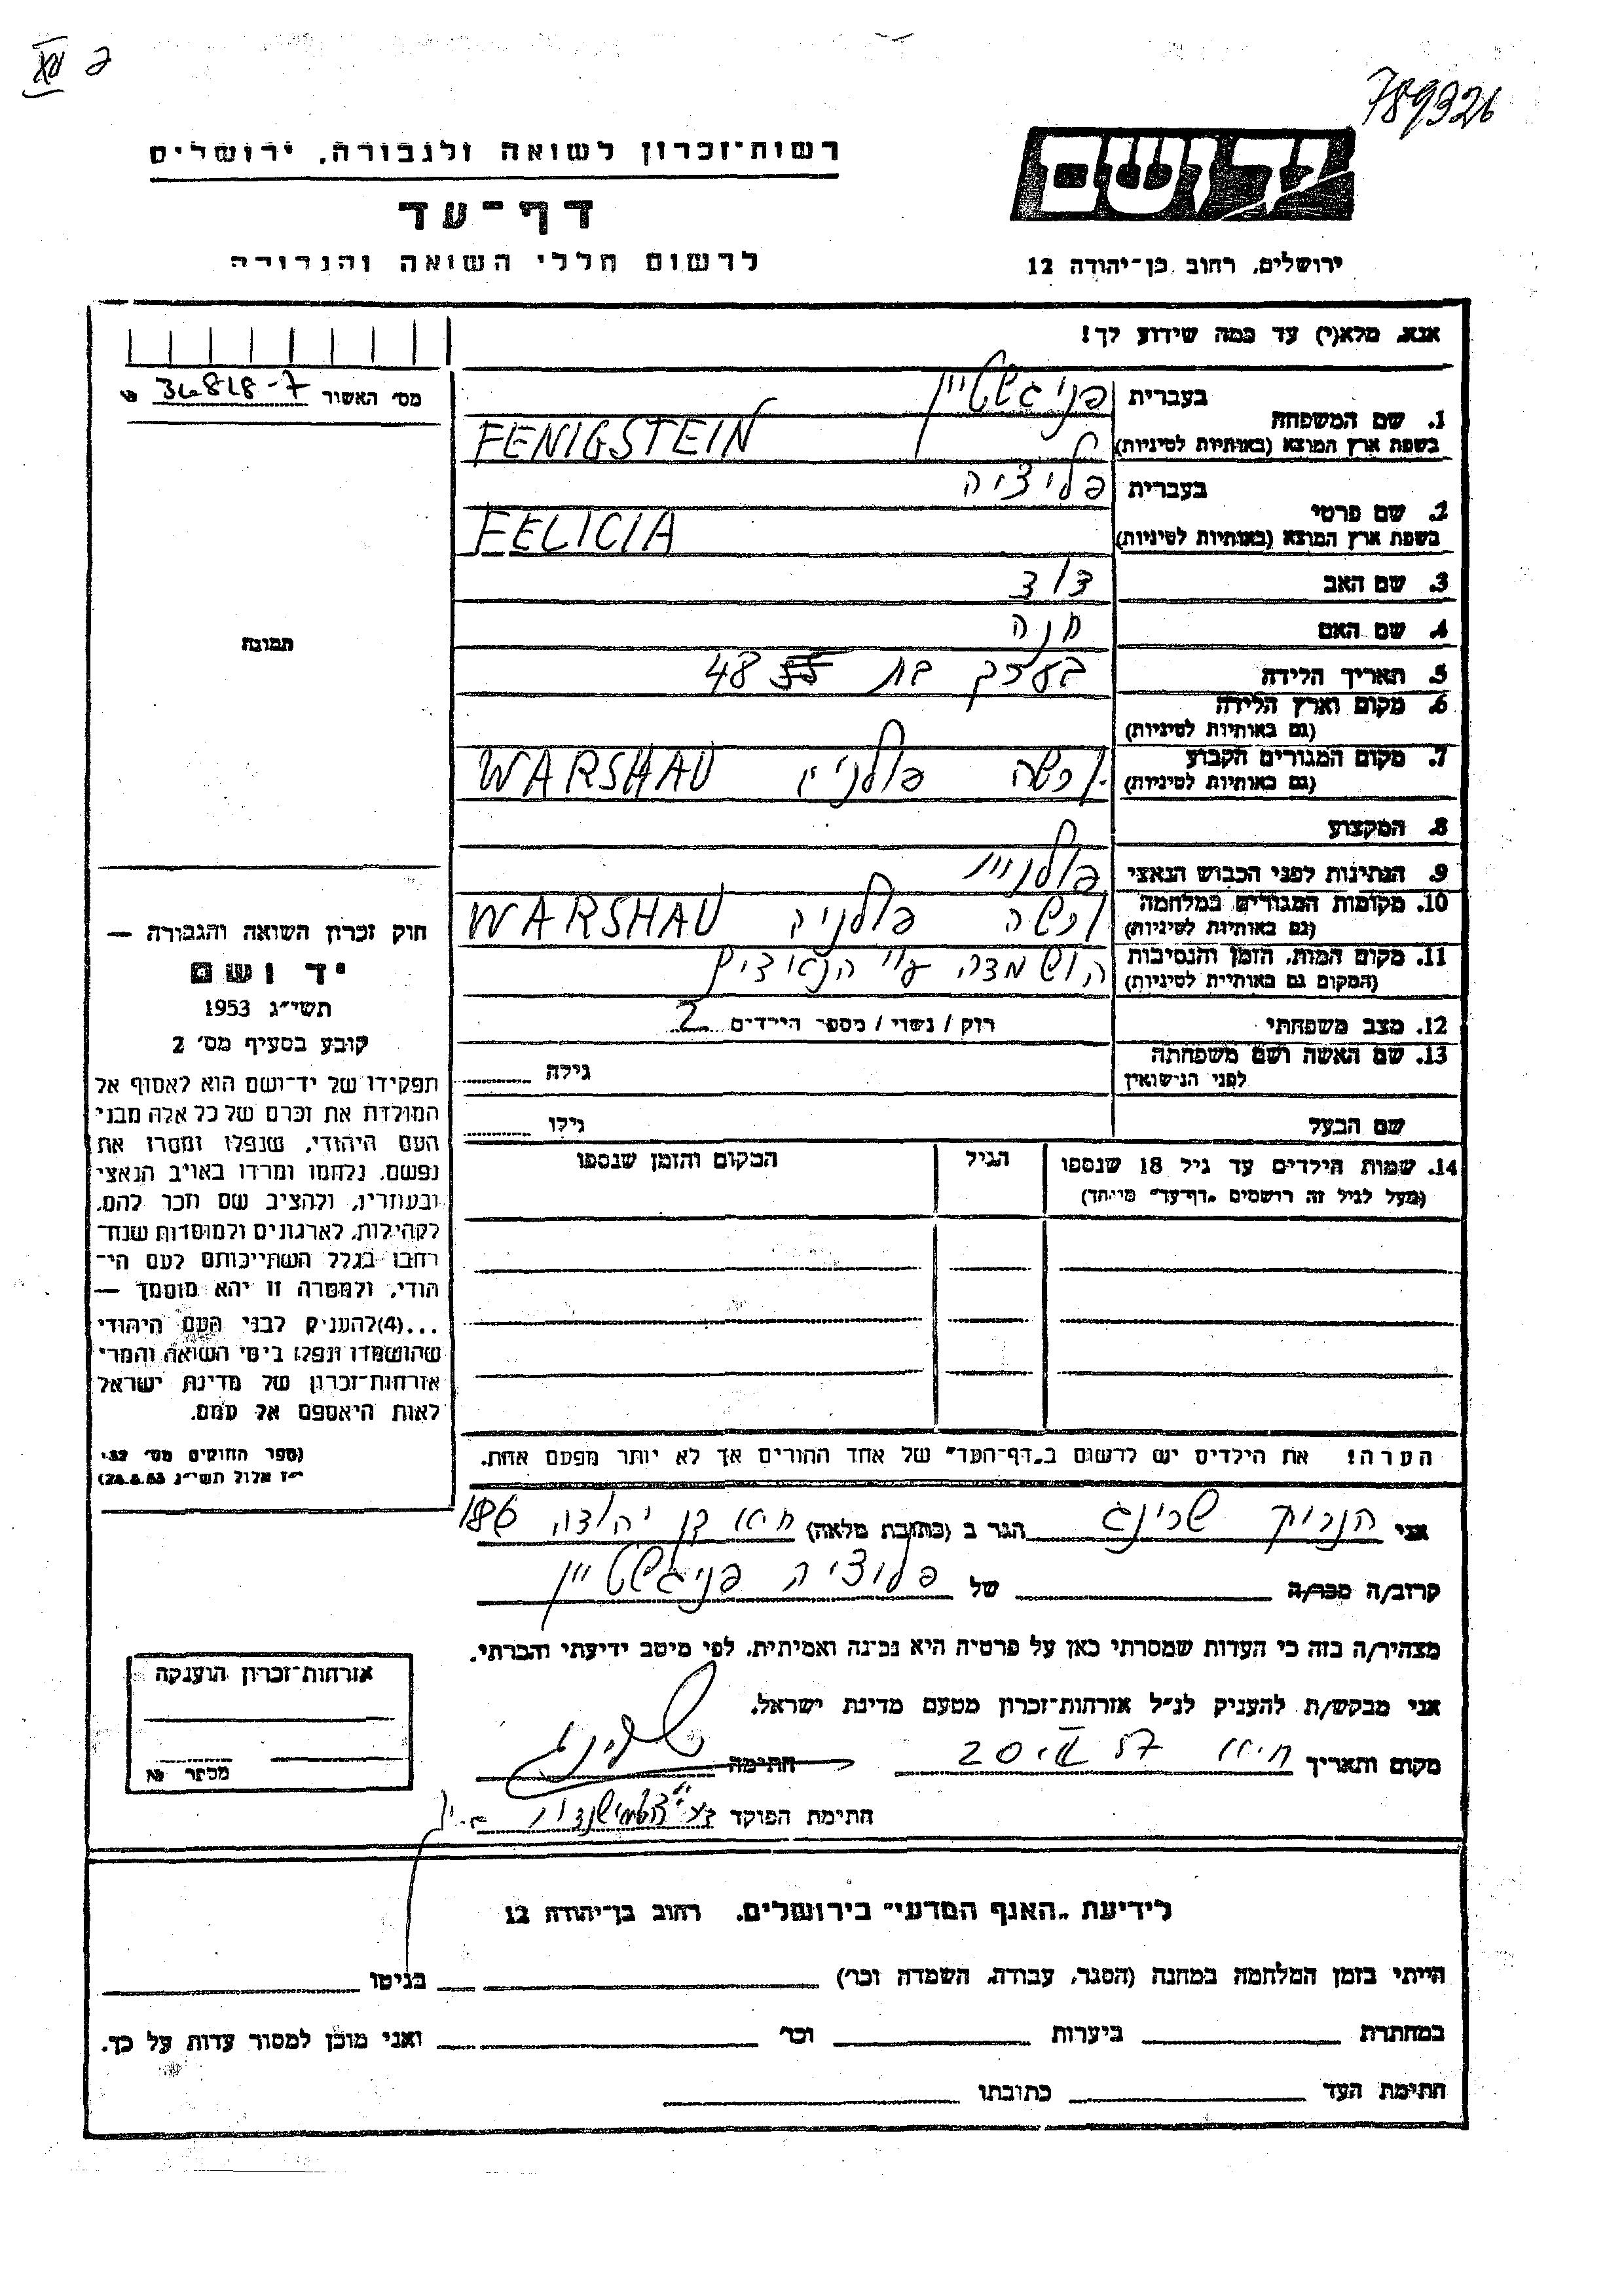 789326
רשות־זכרון לשואה ולגבורה, ירושלים
יד ושם
דף־עד
לרשום חללי השואה והגבורה
ירושלים, רחוב בן־יהודה 12
אנא, מלא(י) עד כמה שידוע לך!
מס׳ האשור 36818-7
1. שם המשפחה בעברית פניגשטיין
בשפת ארץ המוצא (באותיות לטיניות) FENIGSTEIN
2. שם פרטי בעברית פליציה
בשפת ארץ המוצא (באותיות לטיניות) FELICIA
3. שם האב דוד
4. שם האם חנה
תמונה
5. תאריך הלידה בערך בת 48
6. מקום וארץ הלידה
(גם באותיות לטיניות)
7. מקום המגורים הקבוע ורשה פולניה WARSHAU
(גם באותיות לטיניות)
8. המקצוע
9. הנתינות לפני הכבוש הנאצי
10. מקומות המגורים במלחמה ורשה פולניה WARSHAU
(גם באותיות לטיניות)
11. מקום המות, הזמן והנסיבות הושמדה ע״י הנאצים
(המקום גם באותיות לטיניות)
12. מצב משפחתי רוק / נשוי / מספר הילדים 2
13. שם האשה ושם משפחתה גילה
לפני הנישואין
שם הבעל גילו
14. שמות הילדים עד גיל 18 שנספו הגיל המקום והזמן שנספו
(מעל לגיל זה רושמים „דף־עד״ מיוחד)
חוק זכרון השואה והגבורה —
יד ושם
תשי״ג 1953
קובע בסעיף מס׳ 2
תפקידו של יד־ושם הוא לאסוף אל
המולדת את זכרם של כל אלה מבני
העם היהודי, שנפלו ומסרו את
נפשם, נלחמו ומרדו באויב הנאצי
ובעוזריו, ולהציב שם וזכר להם,
לקהילות, לארגונים ולמוסדות שנח־
רבו בגלל השתייכותם לעם הי־
הודי, ולמטרה זו יהא מוסמך —
...(4)להעניק לבני העם היהודי
שהושמדו ונפלו בימי השואה והמרי
אזרחות־זכרון של מדינת ישראל
לאות היאספם אל עמם.
(ספר החוקים מס׳ 132,
י״ז אלול תשי״ג 28.8.53)
הערה! את הילדים יש לרשום ב„דף־העד״ של אחד ההורים אך לא יותר מפעם אחת.
אני הנריק שרינג הגר ב (כתובת מלאה) יהודה 186
קרוב/ה מכר/ה של פליציה פניגשטיין
מצהיר/ה בזה כי העדות שמסרתי כאן על פרטיה היא נכונה ואמיתית, לפי מיטב ידיעתי והכרתי.
אני מבקש/ת להעניק לנ״ל אזרחות־זכרון מטעם מדינת ישראל.
מקום ותאריך 20 57 חתימה שרינג
חתימת הפוקד
אזרחות־זכרון הוענקה
מספר
לידיעת „האגף המדעי״ בירושלים, רחוב בן־יהודה 12
הייתי בזמן המלחמה במחנה (הסגר, עבודה, השמדה וכר׳) בגיטו
במחתרת ביערות וכר׳ ואני מוכן למסור עדות על כך.
חתימת העד כתובתו